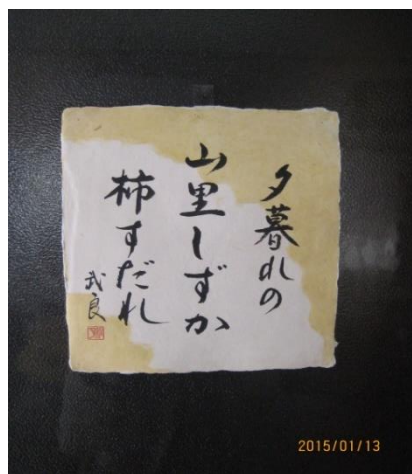 夕暮れの
山里しずか
柿すだれ
武良
2015/01/13